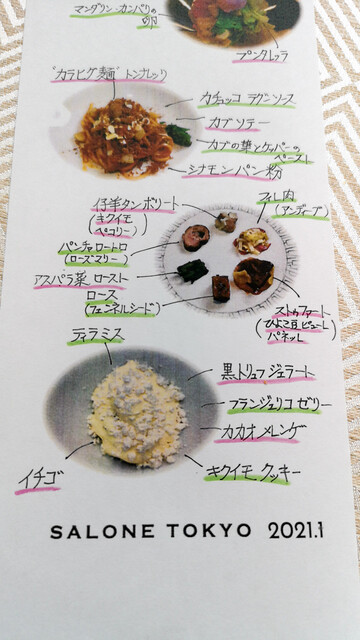 マンダリン・カンパリの
卵
プンタレッラ
"カラヒグ麺" トンナレッリ
カチョッコ ラグーソース
カブソテー
カブの葉とケッパーの
ペースト
シナモンパン粉
仔羊タンボリート
(キクイモ
ペコリーノ)
フィレ肉
(アンディーブ)
パンチェロートロ
(ローズマリー)
アスパラ菜 ロースト
ロース
(フェンネルシード)
ストゥファート
(ひよこ豆ピューレ
パネッレ)
ティラミス
黒トリュフ ジェラート
フランジェリコ ゼリー
カカオ メレンゲ
キクイモ クッキー
イチゴ
SALONE TOKYO 2021.1